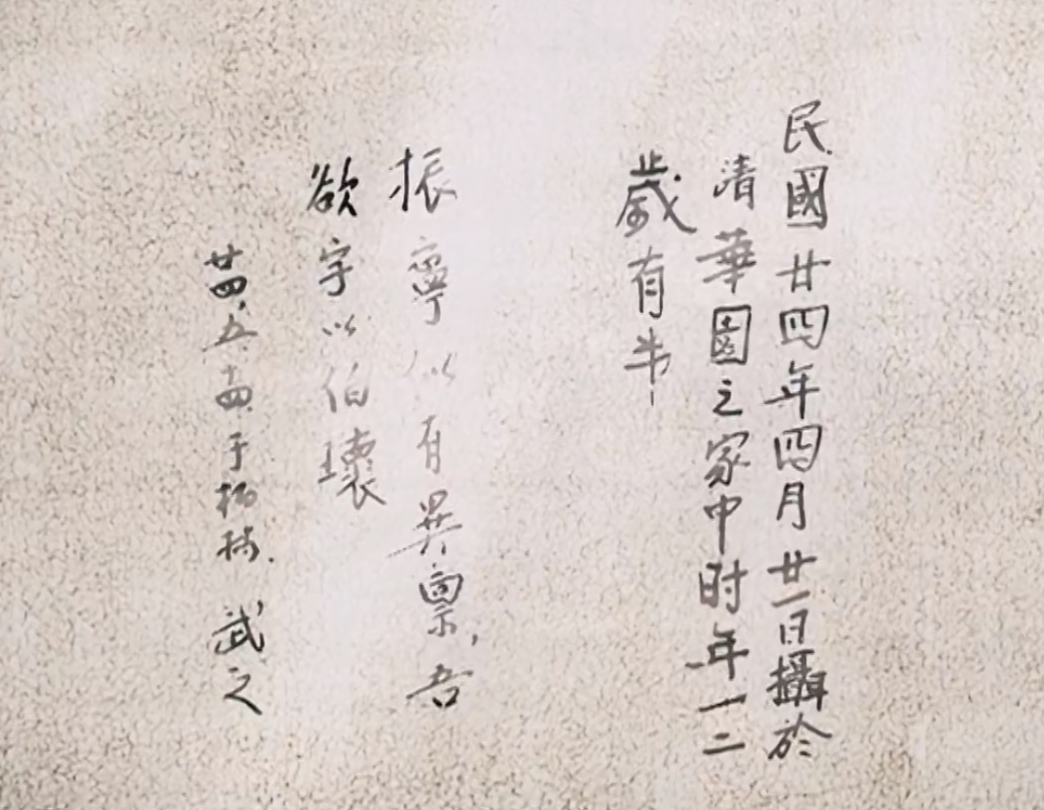 民國廿四年四月廿一日攝於
清華園之家中时年一二
歲有半
振寧似有異禀,吾
欲字以伯瓌
廿四、五、十四、于柏林. 武之